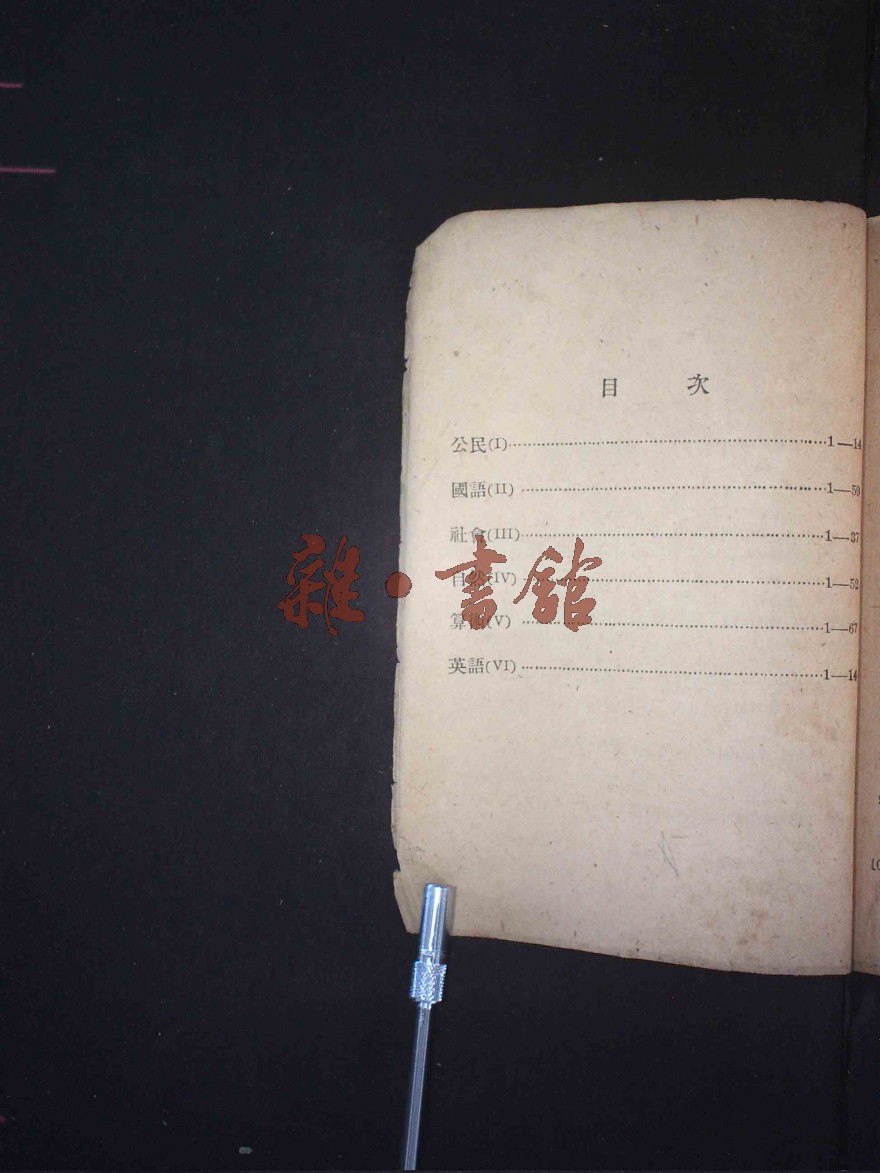 目 次
公民(I)……1—14
國語(II)……1—50
社會(III)……1—37
自然(IV)……1—52
算術(V)……1—67
英語(VI)……1—14
雜·書館